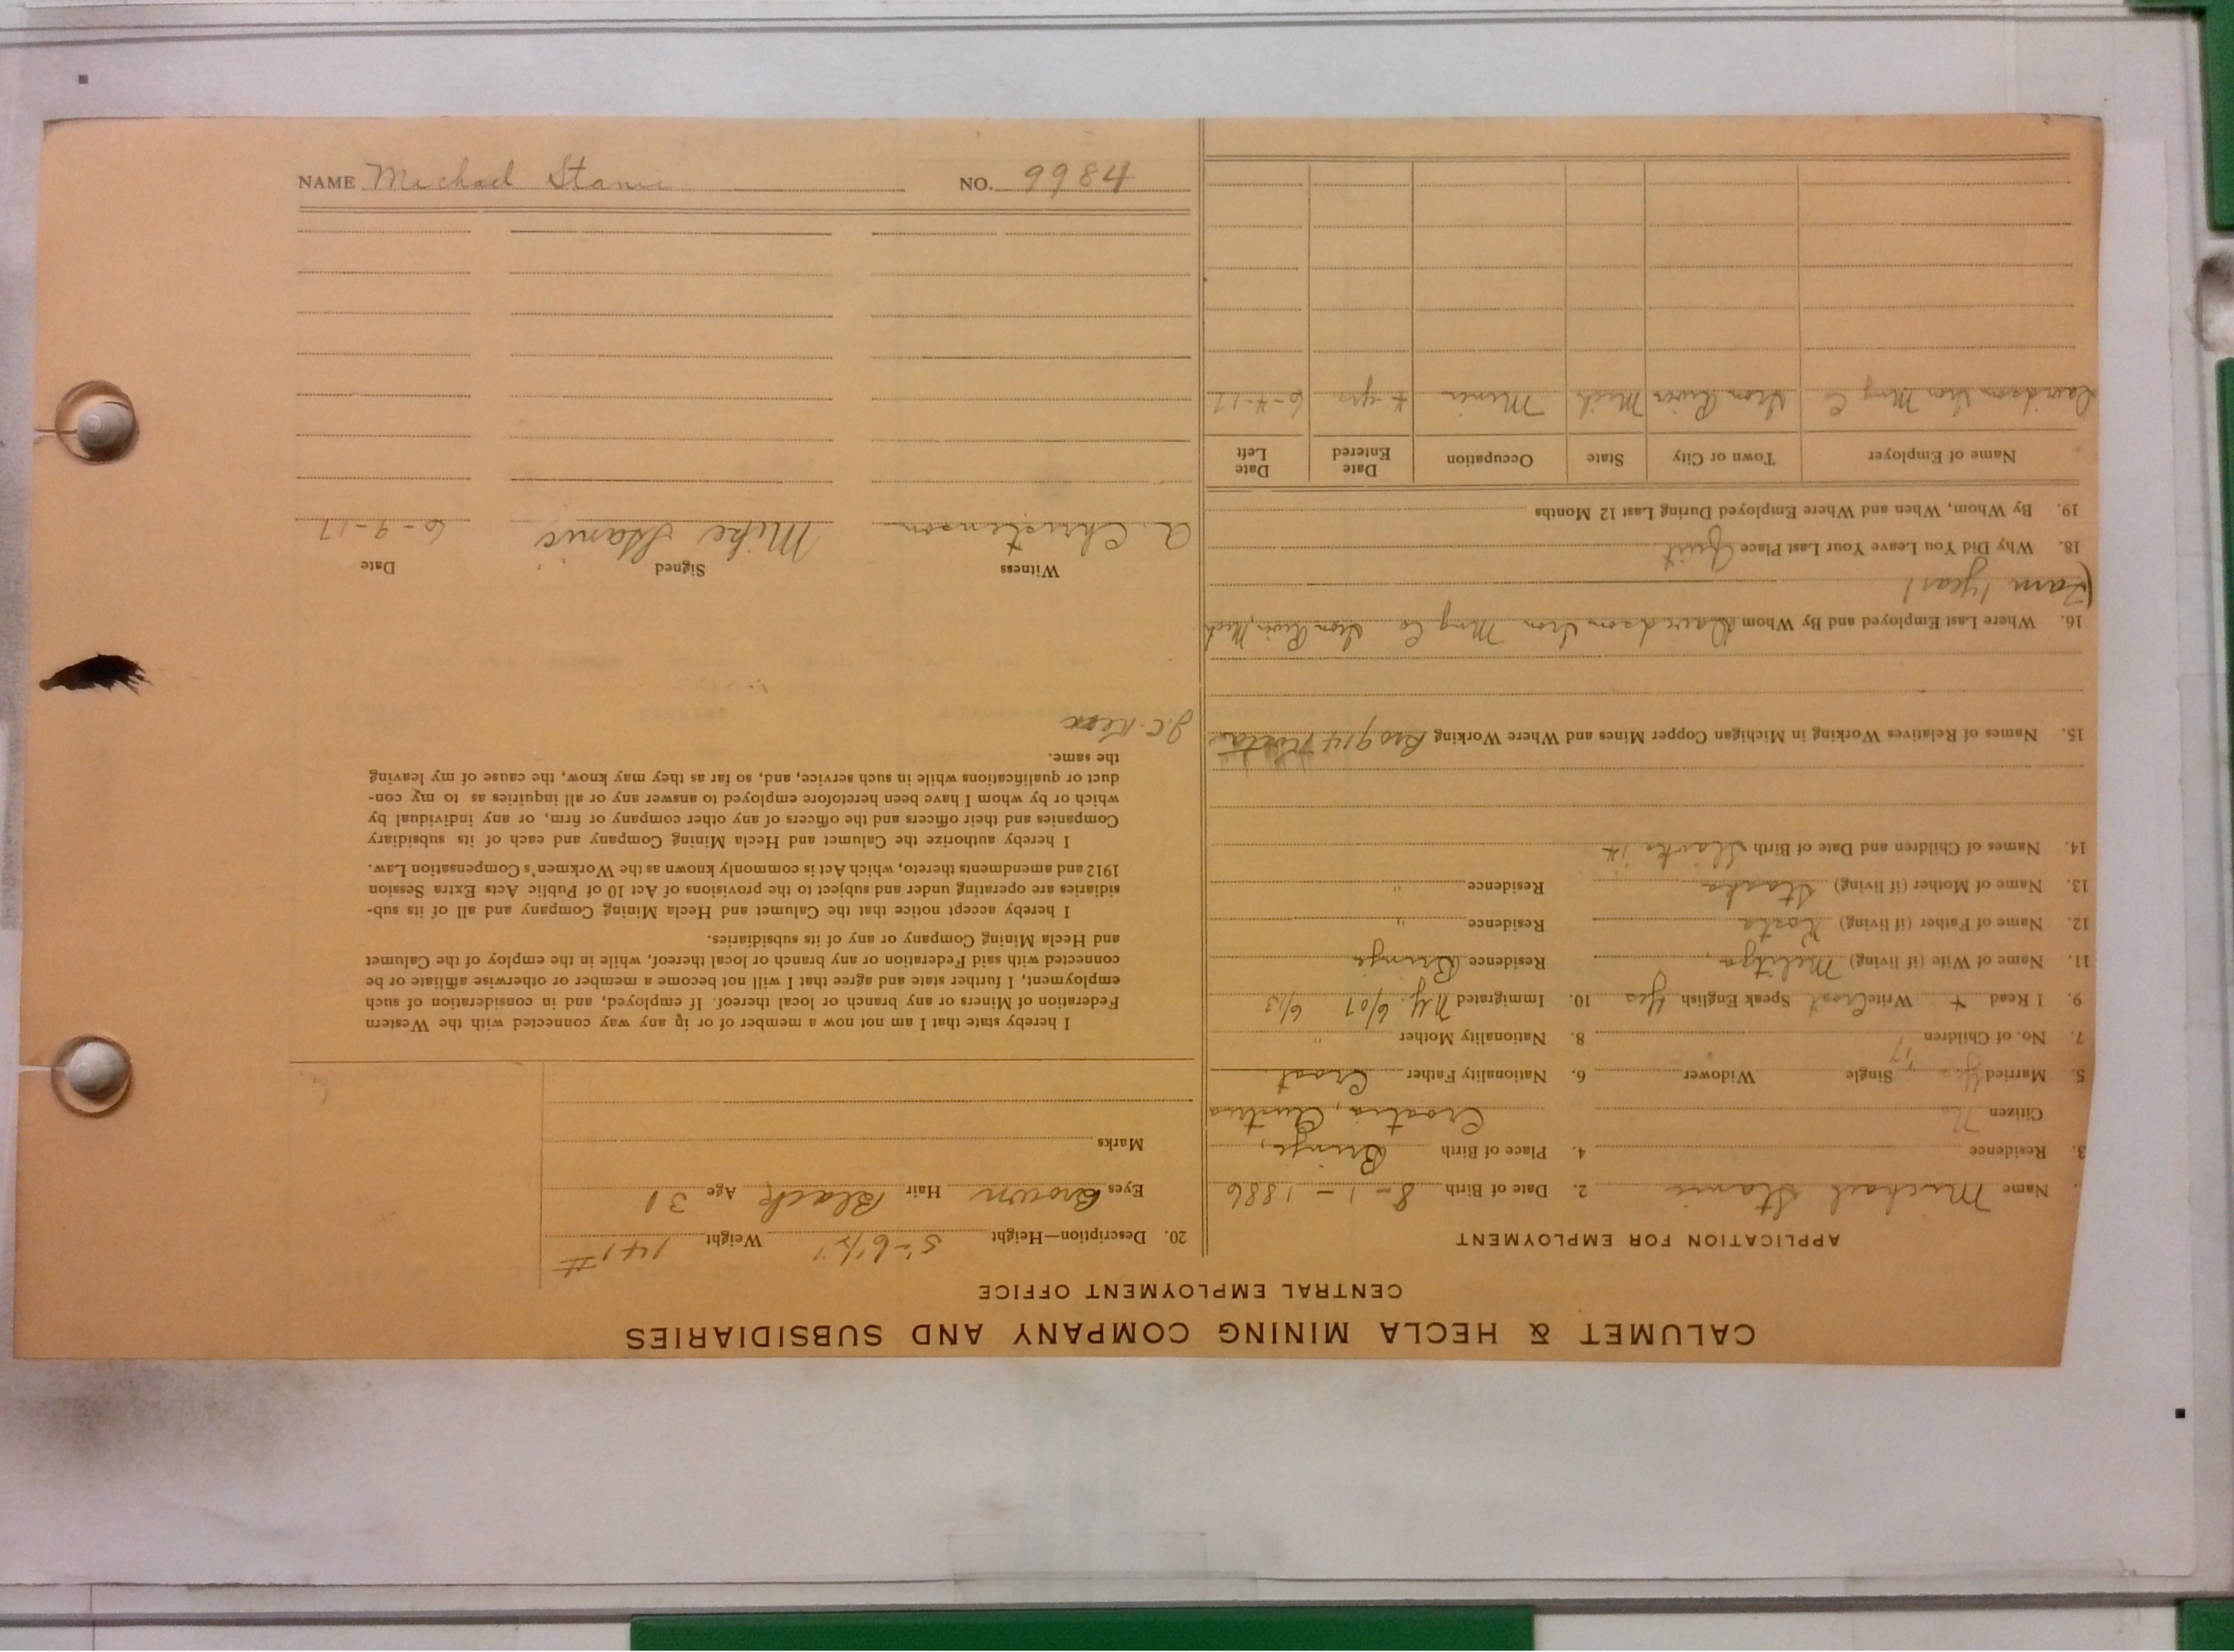 CALUMET & HECLA MINING COMPANY AND SUBSIDIARIES
CENTRAL EMPLOYMENT OFFICE
APPLICATION FOR EMPLOYMENT
Name Michael Stanic 2. Date of Birth 8-1-1886
3. Residence 4. Place of Birth Brinje,
Citizen No Croatia, Austria
5. Married Yes Single " Widower 6. Nationality Father Croat
7. No. of Children 8. Nationality Mother "
9. I Read + Write Croat Speak English Yes 10. Immigrated NY 6/07 6/13
11. Name of Wife (if living) Residence Brinje
12. Name of Father (if living) Kosta Residence "
13. Name of Mother (if living) Residence "
14. Names of Children and Date of Birth
15. Names of Relatives Working in Michigan Copper Mines and Where Working Bro 914
16. Where Last Employed and By Whom Davidson Iron Mng Co Iron River, Mich
1 year)
18. Why Did You Leave Your Last Place Quit
19. By Whom, When and Where Employed During Last 12 Months
Name of Employer Town or City State Occupation Date Entered Date Left
Davidson Iron Mng Co Iron River Mich Miner yrs 6-4-17
20. Description—Height 5'-6 1/2" Weight 141#
Eyes Brown Hair Black Age 31
Marks
I hereby state that I am not now a member of or in any way connected with the Western
Federation of Miners or any branch or local thereof. If employed, and in consideration of such
employment, I further state and agree that I will not become a member or otherwise affiliate or be
connected with said Federation or any branch or local thereof, while in the employ of the Calumet
and Hecla Mining Company or any of its subsidiaries.
I hereby accept notice that the Calumet and Hecla Mining Company and all of its sub-
sidiaries are operating under and subject to the provisions of Act 10 of Public Acts Extra Session
1912 and amendments thereto, which Act is commonly known as the Workmen's Compensation Law.
I hereby authorize the Calumet and Hecla Mining Company and each of its subsidiary
Companies and their officers and the officers of any other company or firm, or any individual by
which or by whom I have been heretofore employed to answer any or all inquiries as to my con-
duct or qualifications while in such service, and, so far as they may know, the cause of my leaving
the same.
J.C.
Witness Signed Date
A. Christenson Mike Stanic 6-9-17
NAME Michael Stanic NO. 9984